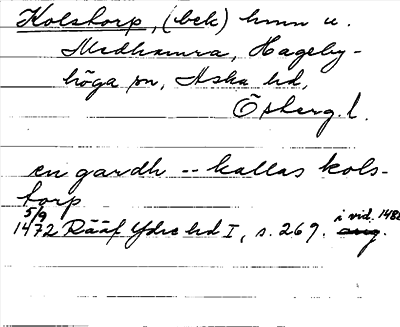 Kolstorp, (bek) hmn u.
Medhamra, Hageby-
höga sn, Aska hd,
Östberg. l.
en gardh -- kallas kols-
torp
5/9 1472 Rääf Ydre hd I, s. 269. i vid. 1482